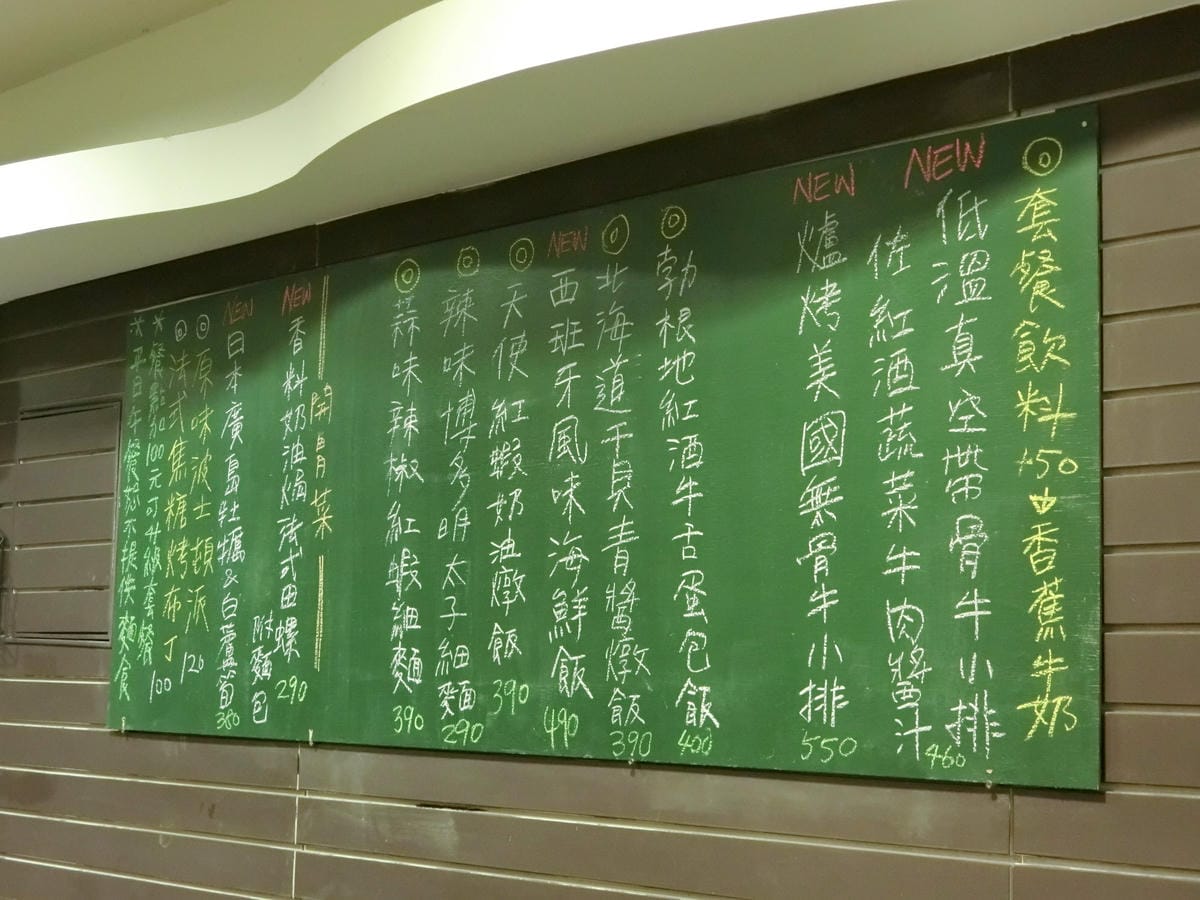 套餐飲料+50→香蕉牛奶
NEW
低溫真空帶骨牛小排
佐紅酒蔬菜牛肉醬汁
460
NEW
爐烤美國無骨牛小排
550
勃根地紅酒牛舌蛋包飯
400
北海道干貝青醬燉飯
390
NEW
西班牙風味海鮮飯
490
天使紅蝦奶油燉飯
390
辣味博多明太子細麵
290
蒜味辣椒紅蝦細麵
390
開胃菜
NEW
香料奶油焗法式田螺
290
附麵包
NEW
日本廣島牡蠣&白蘆筍
380
原味波士頓派
120
法式焦糖烤布丁
100
*餐點加100元可升級套餐
*平日午餐恕不提供麵食